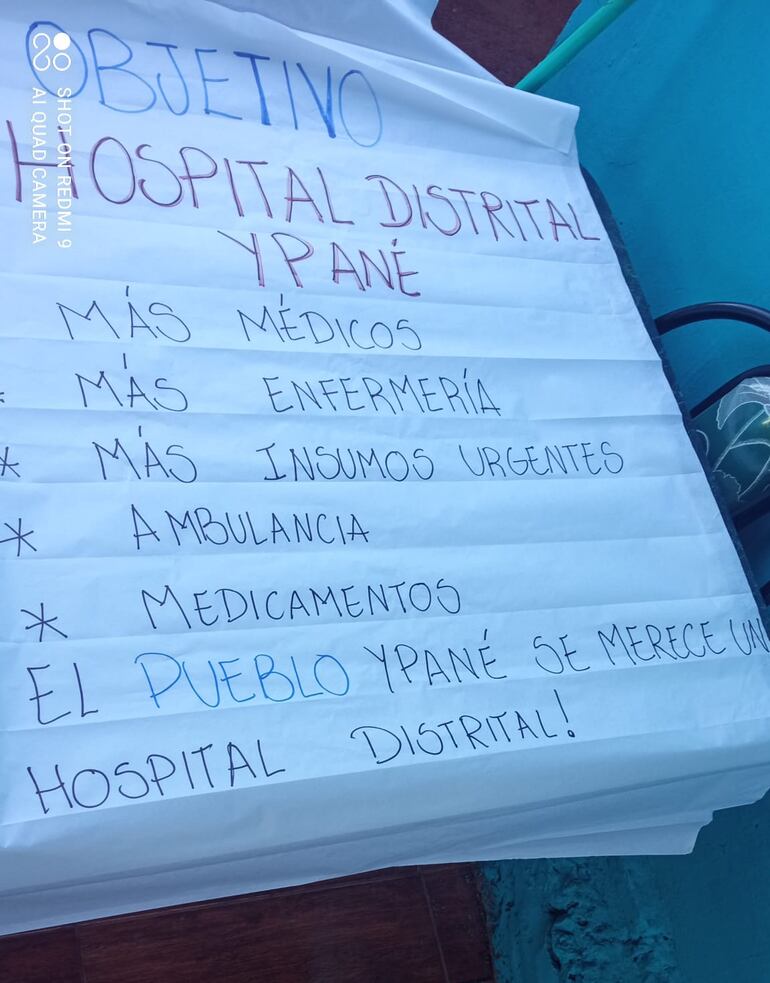 OBJETIVO
HOSPITAL DISTRITAL
YPANÉ
MÁS MÉDICOS
* MÁS ENFERMERÍA
* MÁS INSUMOS URGENTES
* AMBULANCIA
* MEDICAMENTOS
EL PUEBLO YPANÉ SE MERECE UN
HOSPITAL DISTRITAL!
SHOT ON REDMI 9
AI QUAD CAMERA